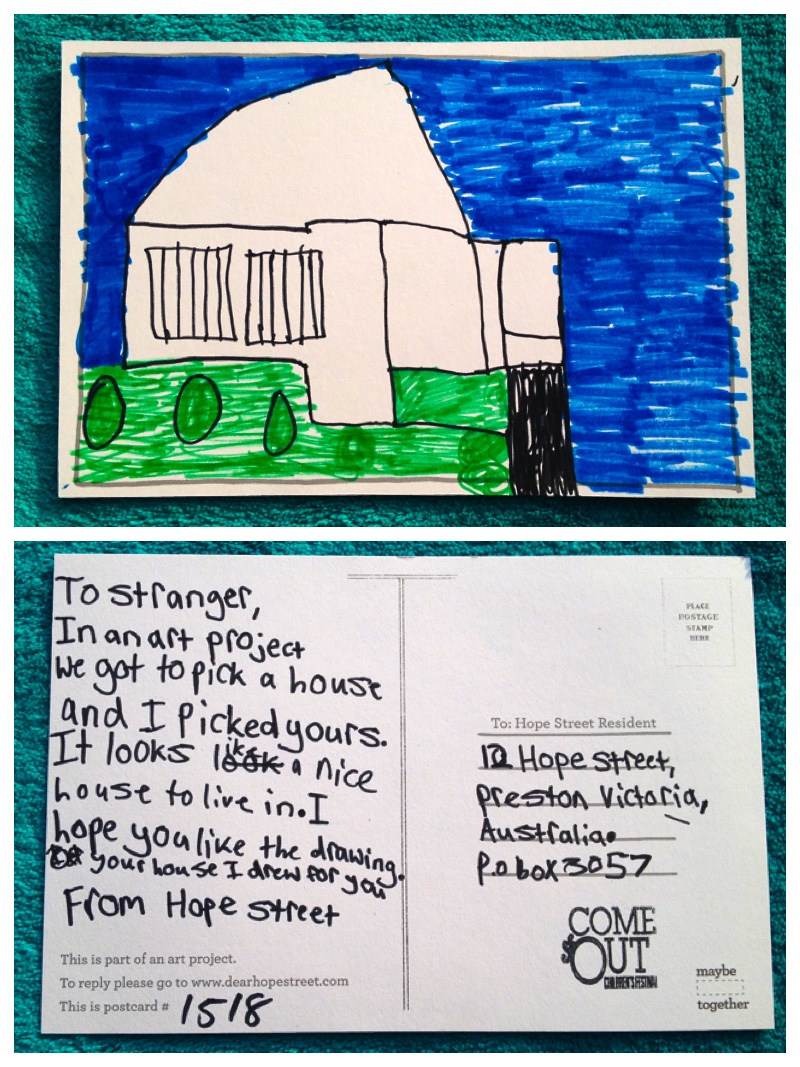 To stranger,
In an art project
We got to pick a house
and I Picked yours.
It looks like a nice
house to live in. I
hope you like the drawing.
your house I drew for you
From Hope street
This is part of an art project.
To reply please go to www.dearhopestreet.com
This is postcard # 1518
PLACE
POSTAGE
STAMP
HERE
To: Hope Street Resident
12 Hope street,
Preston Victoria,
Australia.
P.o box 3057
COME
OUT
CHILDREN'S FESTIVAL
maybe
together